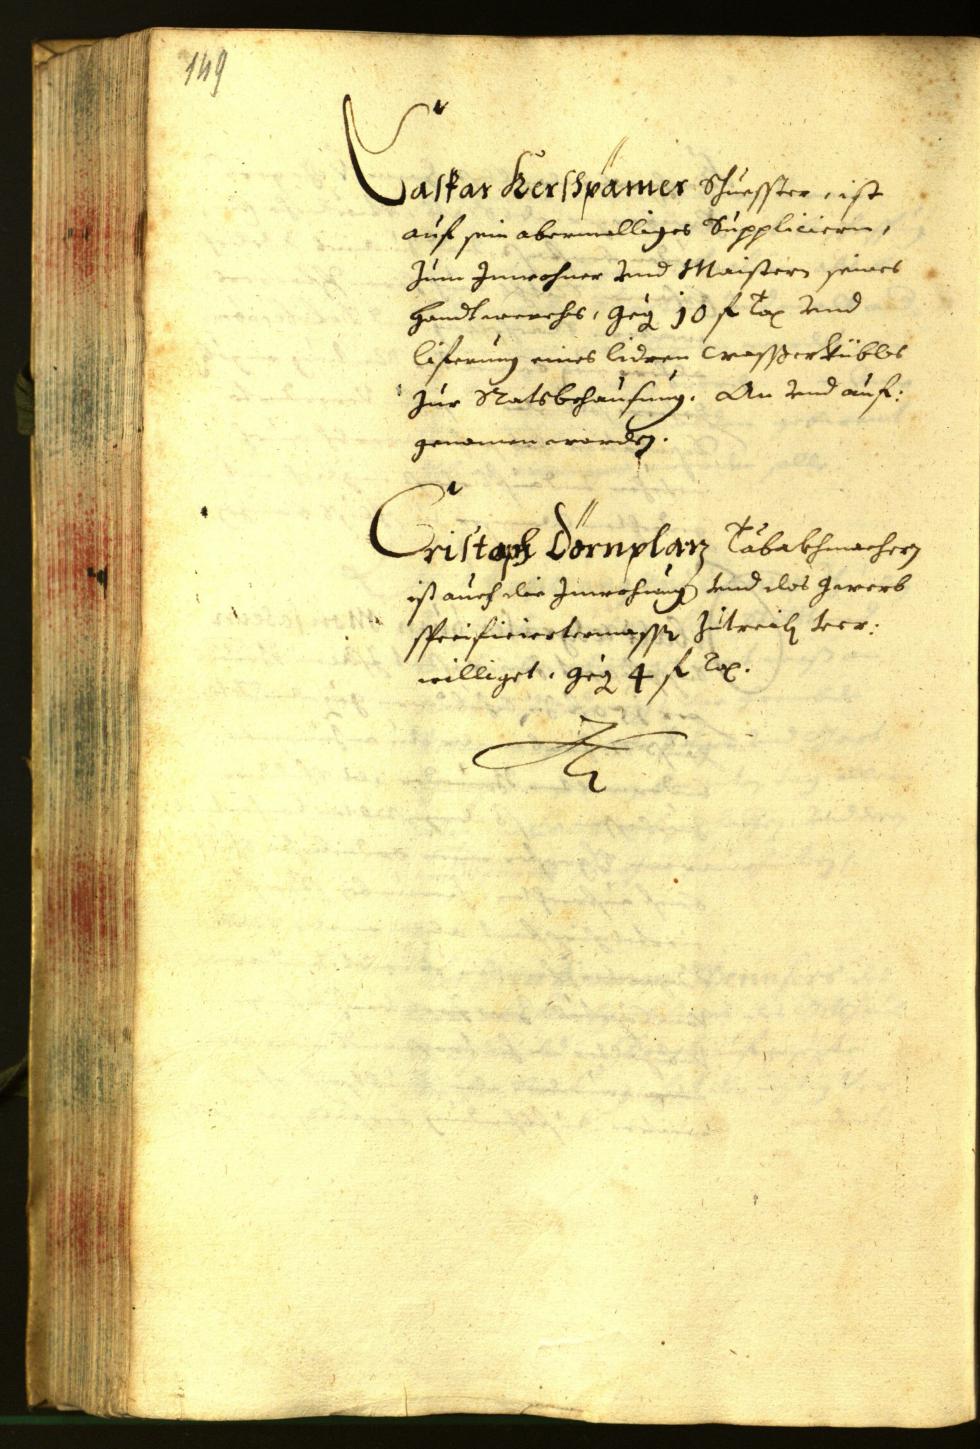 149
Caspar Kerschpämer Schuesster, ist
auf sein abermalliges Suppliciern,
zum Innwohner vnd Maistern seines
handtwerchs, geg 10 f Tax vnd
liferung eines lidren wasserkübles
zur Ratsbehausung. An vnd auf:
genomen worden.
Cristoph Dörnplaz Tabakhmachern
ist auch die Inwohung vnd das Gewerb
specificiertermassen zutreib ver:
williget, geg 4 f Tax.